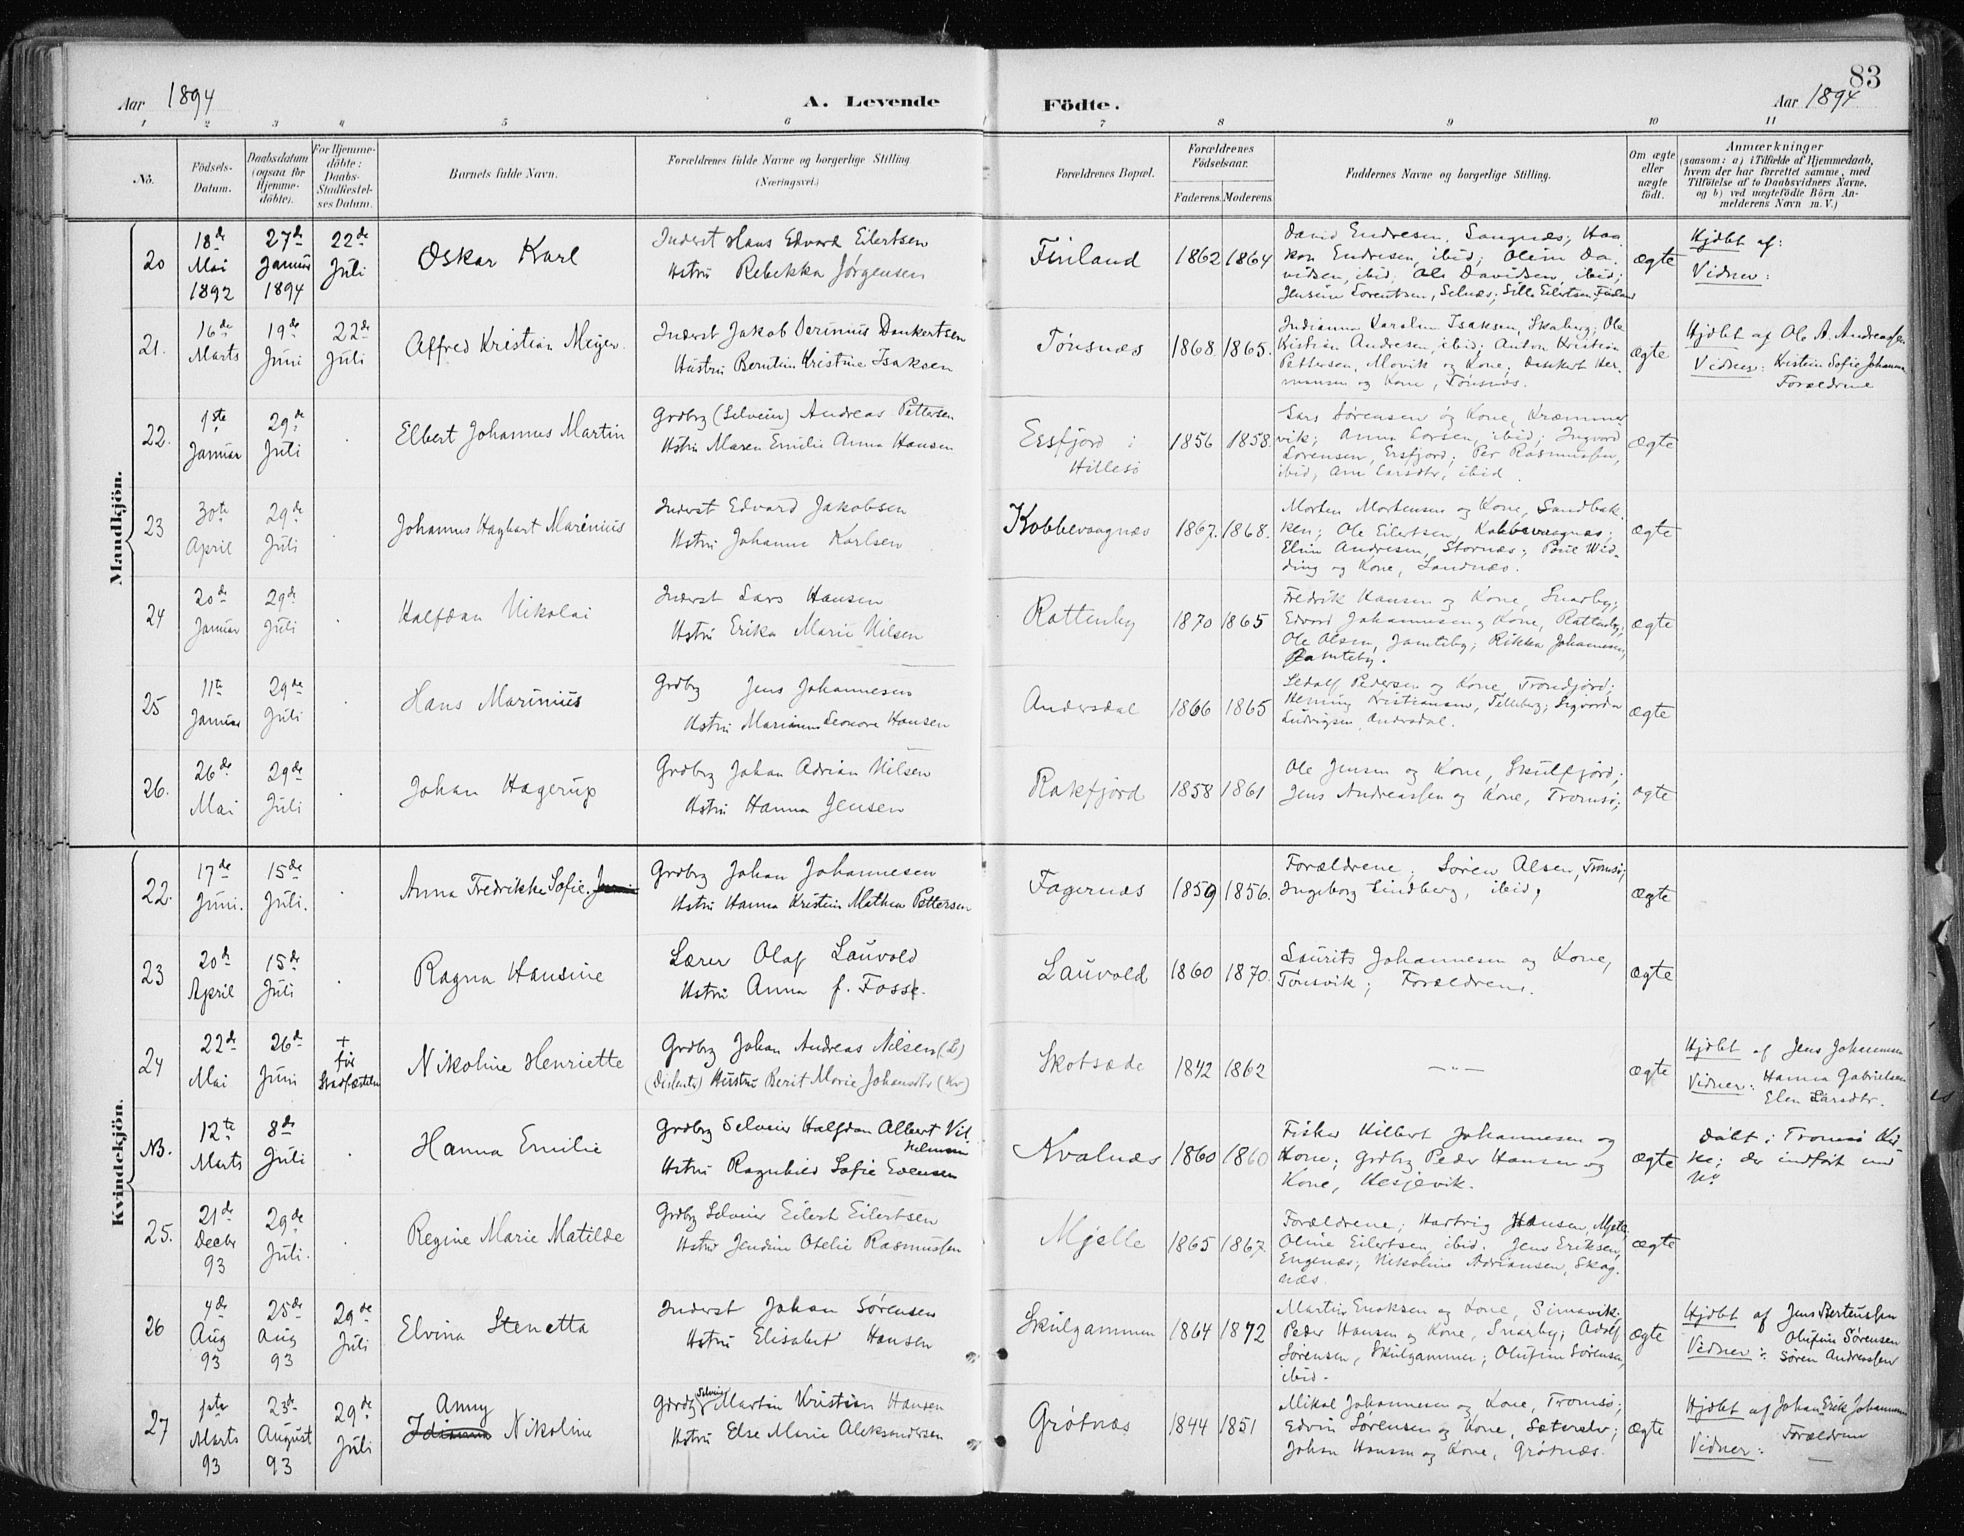 83
Aar 1894
A. Levende Födte.
Aar 1894
1 2 3 4 5 6 7 8 9 10 11
No.
Födsels-Datum.
Daabsdatum (ogsaa for Hjemme-döbte).
For Hjemme-döbte: Daabs-Stadfæstel-ses Datum.
Barnets fulde Navn.
Forældrenes fulde Navne og borgerlige Stilling (Næringsvei.)
Forældrenes Bopæl.
Forældrenes Födselsaar.
Faderens. Moderens.
Faddernes Navne og borgerlige Stilling.
Om ægte eller uægte födt.
Anmærkninger
(saasom: a) i Tilfælde af Hjemmedaab,
hvem der har forrettet samme, med
Tilföielse af to Daabsvidners Navne,
og b) ved uægtefödte Börn An-
melderens Navn m. V.)
Mandkjön.
20 18de Mai 1892 27de Januar 1894 22de Juli Oskar Karl
Inderst Hans Edvard Eilertsen
Hstru Rebekka Jørgensen
Finland 1862 1864
David Endresen, Sangnæs; Haa-
kon Endresen, ibid; Oline Da-
vidsen, ibid; Ole Davidsen, ibid;
Jensine Sorentsen, Selnæs; Sille Eilertsen, Finland
ægte
Hjdbt af:
Vidner:
21. 16de Marts 19de Juni 22de Juli Alfred Kristian Meyer
Inderst Jakob Serinius Dankertsen
Hustru Berntin Kristine Isaksen
Tønsnæs 1868 1865.
Indianna Karoline Isaksen, Skaberg; Ole
Kristian Andresen, ibid; Anton Kristian
Pettersen, Movik og Kone; Dankert Her-
mansen og Kone, Tønsnæs.
ægte
Hjdbt af Ole A. Andreassen
Vidner: Kristein Sofie Johanna
Forældrene
22. 1ste Januar 29de Juli Elbert Johannes Martin
Grdbrg (Selveier) Andreas Pettersen
Hstru Maren Emilie Anna Hansen
Ersfjord i
Hillesø
1856 1858.
Lars Sørensen og Kone, Kræmmer-
vik; Anna Larsen, ibid; Ingvord
Sørensen, Ersfjord; Per Rasmussen,
ibid, Ane Larsdtr, ibid.
ægte
23 30te April 29de Juli Johannes Hagbart Marenius
Inderst Edvard Jakobsen
Hstru Johanne Karlsen
Kobbevaagnæs 1867. 1868.
Morten Mortensen og Kone, Sandbak-
ken; Ole Eilertsen, Kobbevaagnæs;
Eline Andresen, Stornæs; Poul Wid-
ding og Kone, Sandnæs.
ægte
24 20de Januar 29de Juli Halfdan Nikolai
Inderst Lars Hansen
Hstru Erika Marie Nilsen
Rottenby 1870 1865
Fredrik Hansen og Kone, Snarby;
Edvard Johannesen og Kone, Rottenby;
Ole Olsen, Jamteby; Rikka Johannesen,
Jamteby.
ægte
25 11te Januar 29de Juli Hans Marinius
Grdbrg Jens Johannesen
Hstru Marianne Leonore Hansen
Andersdal 1866 1865
Pedersen og Kone, Tromdjord;
Hening Kristiansen, Tilleberg; Sigvorda
Ludvigsen, Andersdal.
ægte
26. 26de Mai 29de Juli Johan Hagerup
Grdbrg Johan Adrian Nilsen
Hstru Hanna Jensen
Rakfjord 1858 1861
Ole Jensen og Kone, Skulfjord;
Jens Andreassen og Kone, Tromsø;
ægte
Kvindekjön.
22. 17de Juni. 15de Juli. Anna Fredrikke Sofie
Grdbrg Johan Johannesen
Hstru Hanna Kristein Mathea Pettersen
Fagernæs 1859 1856.
Forældrene; Søren Olsen, Tromsø;
Ingeborg Lindberg, ibid;
ægte
23 20de April 15de Juli Ragna Hansine
Lærer Olaf Lauvold
Hstru Anna f. Foss.
Lauvold 1860 1870.
Laurits Johannesen og Kone,
Tønsvik; Forældrene.
ægte
24 22de Mai 26de Juni + før Stadfæstelsen Nikoline Henriette
Grdbrg Johan Andreas Nilsen (L)
(Disent) Hustru Berit Marie Johansdtr (Kv)
Skotsæde 1842 1862 — " — ægte
Hjdbt af Jens Johannesen
Vidner: Hanna Gabrielsen
Elen Larsdtr.
NB. 12te Marts 8de Juli Hanna Emilie
Grdbrg Selveier Halfdan Albert Vil-
helmsen
Hstru Ragnhild Sofie Evensen
Kvalnæs 1860 1860
Fisker Hilbert Johannesen og
Kone; Grdbrg Peder Hansen og
Kone, Hesjevik.
ægte
Døbt i Tromsø Kir-
ke; der indført med
No
25. 21de Decbr 93 29de Juli. Regine Marie Matilde
Grdbrg Selveier Eilert Eilertsen
Hstru Jendine Otelie Rasmussen
Mjelle 1865 1867.
Forældrene; Hartvig Hansen, Mjelle;
Oline Eilertsen, ibid. Jens Eriksen,
Engenæs; Nikoline Adriansen, Skog-
næs.
ægte
26 4de Aug 93 25de Aug 93 29de Juli Elvina Stenetta
Inderst Johan Sørensen
Hstru Elisabet Hansen
Skulgammen 1864 1872
Martin Enoksen og Kone, Simavik;
Peder Hansen og Kone, Snarby; Adolf
Sørensen, Skulgammen; Olufine Sørensen,
ibid.
ægte
Hjdbt af Jens Berteussen
Olufine Sørensen
Vidner: Søren Andreassen
27 1ste Marts 93 23de August 93 29de Juli Anny
Nikoline
Grdbrg Selveier Martin Kristian Hansen
Hstru Else Marie Aleksandersen
Grøtnæs 1844 1851
Mikal Johannesen og Kone, Tromsø;
Edvin Sørensen og Kone, Sæterelv;
Johan Hansen og Kone, Grøtnæs.
ægte
Hjdbt af Johan Erik Johannesen
Vidner: Forældrene